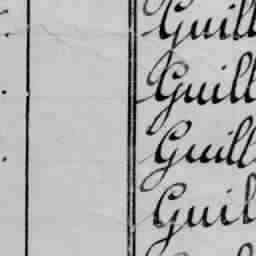 Guill
Guill
Guill
Guil